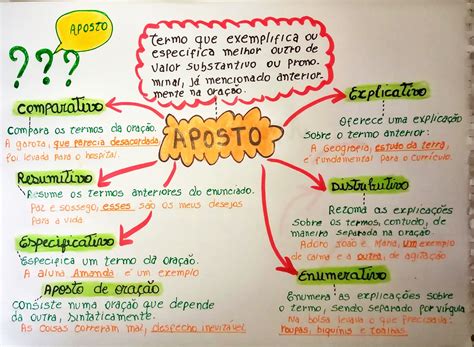 APOSTO
???
Termo que exemplifica ou
especifica melhor outro de
valor substantivo ou prono.
minal, já mencionado anterior.
mente na oração.
APOSTO
Comparativo
Compara os termos da oração.
A garota, que parecia desacordada
foi levada para o hospital.
Resumitivo
Resume os termos anteriores do enunciado.
Paz e sossego, esses são os meus desejos
Para a vida
Especificativo
Especifica um termo da oração.
A aluna Amanda é um exemplo
Aposto de oração
Consiste numa oração que depende
da outra, sintaticamente.
As coisas correram mal, desfecho inevitável
Explicativo
Oferece uma explicação
sobre o termo anterior:
A Geografia, estudo da terra,
é fundamental para o currículo.
Distributivo
Retoma as explicações
sobre os termos, contudo, de
maneira separada na oração.
Adoro João e Maria, um exemplo
de calma e a outra, de agitação
Enumerativo
Enumera as explicações sobre
o termo, sendo separado por vírgula
Na bolsa levava o que precisava:
roupas, biquínis e toalhas.